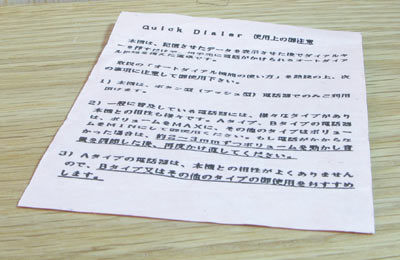 Quick Dialer 使用上の御注意
本機は、記憶させたデータを表示させた後でダイヤルキ
ーを押すだけで、電話がかけられるオートダイア
ル機能を備えた
取説の「オートダイアル機能の使い方」を 上、次
の事項に注意して御使用下さい。
1）本機は、ボタン型（プッシュ型）電話器でのみご利用
頂けます。
2）一般に普及している電話器には、様々なタイプがあり
本機との相性も様々です。Aタイプ、Bタイプの電話器
はボリュームをMAXに、その他のタイプはボリュー
ムをMINにして御使用ください。もし電話がかからな
かった場合は、約2〜3mmずつボリュームを動かし音
量を調節した後、再度かけ直してください。
3）Aタイプの電話器は、本機との相性がよくありません
ので、Bタイプ又はその他のタイプの御使用をおすすめ
します。